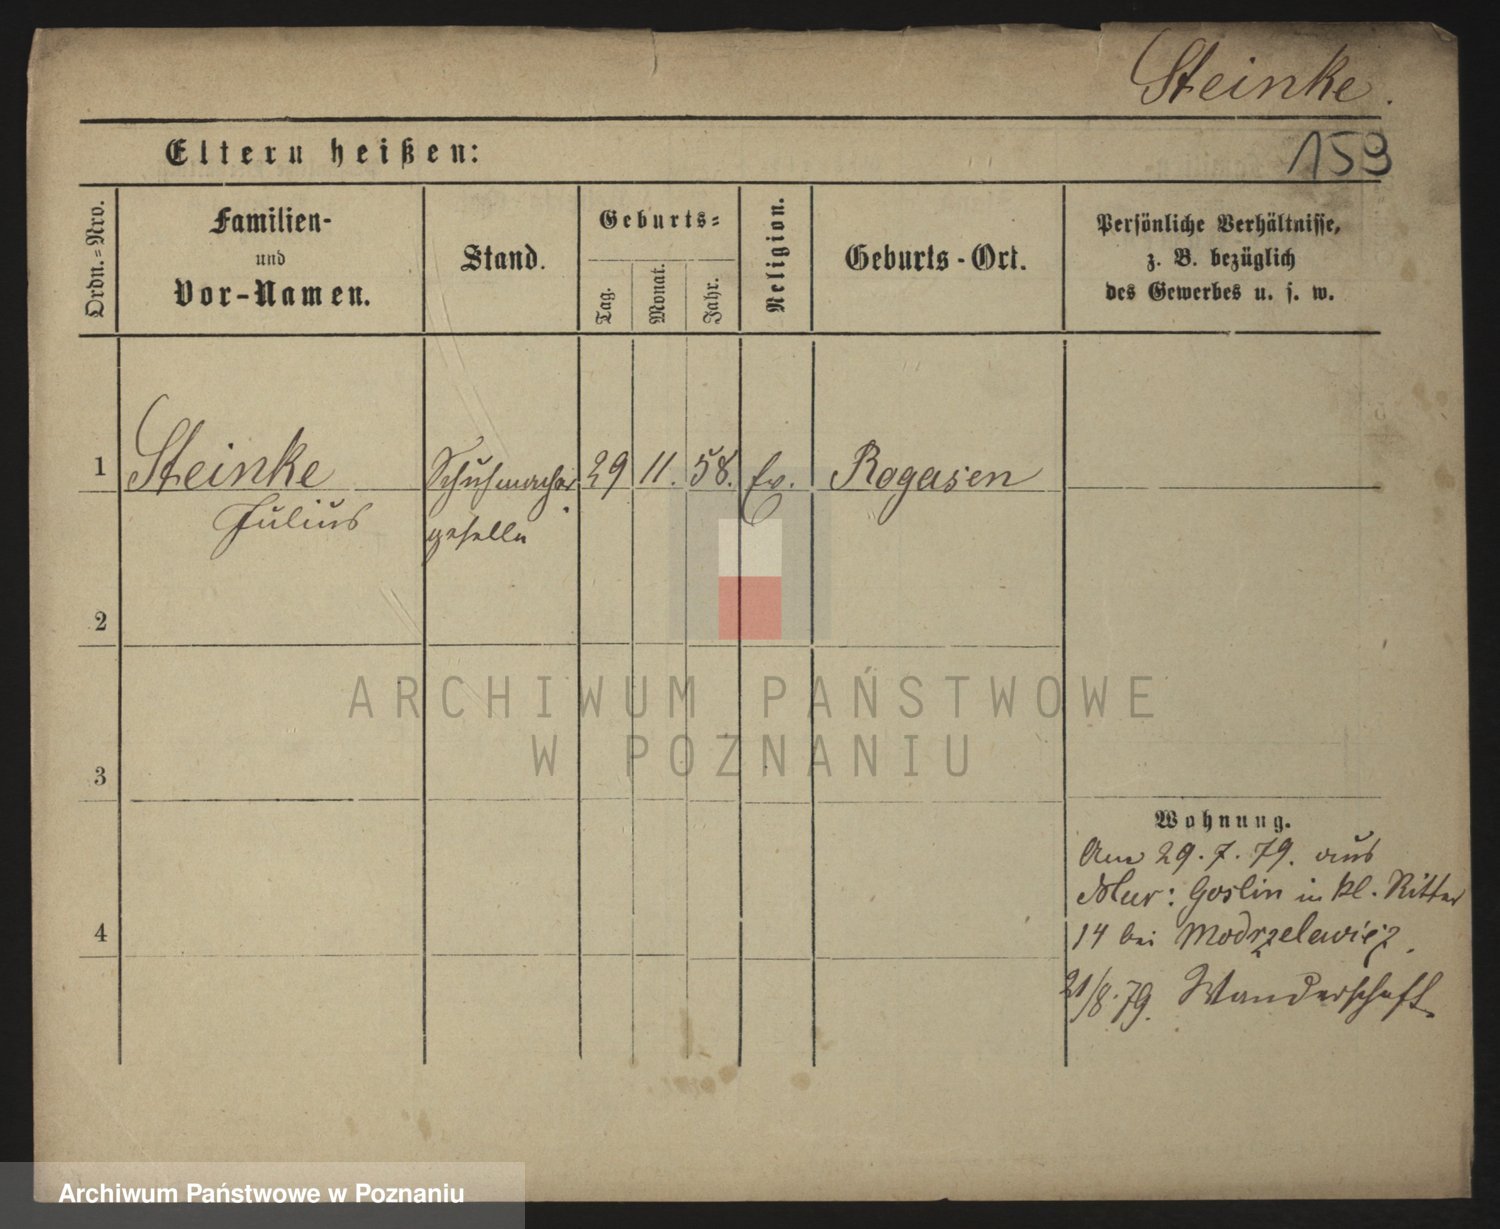 Steinke.
159
Eltern heißen:
Ordn.-Nro.
Familien-
und
Vor-Namen.
Stand.
Geburts-
Tag.
Monat.
Jahr.
Religion.
Geburts-Ort.
Persönliche Verhältnisse,
z. B. bezüglich
des Gewerbes u. s. w.
1 Steinke Schuhmacher 29 11. 58. Ev. Rogasen
Julius geselle
2
3
4
Wohnung.
Am 29.7.79. aus
Mur: Goslin in kl. Ritter
14 bei Modrzelewicz.
21/8.79. Wanderschaft
ARCHIWUM PAŃSTWOWE
W POZNANIU
Archiwum Państwowe w Poznaniu